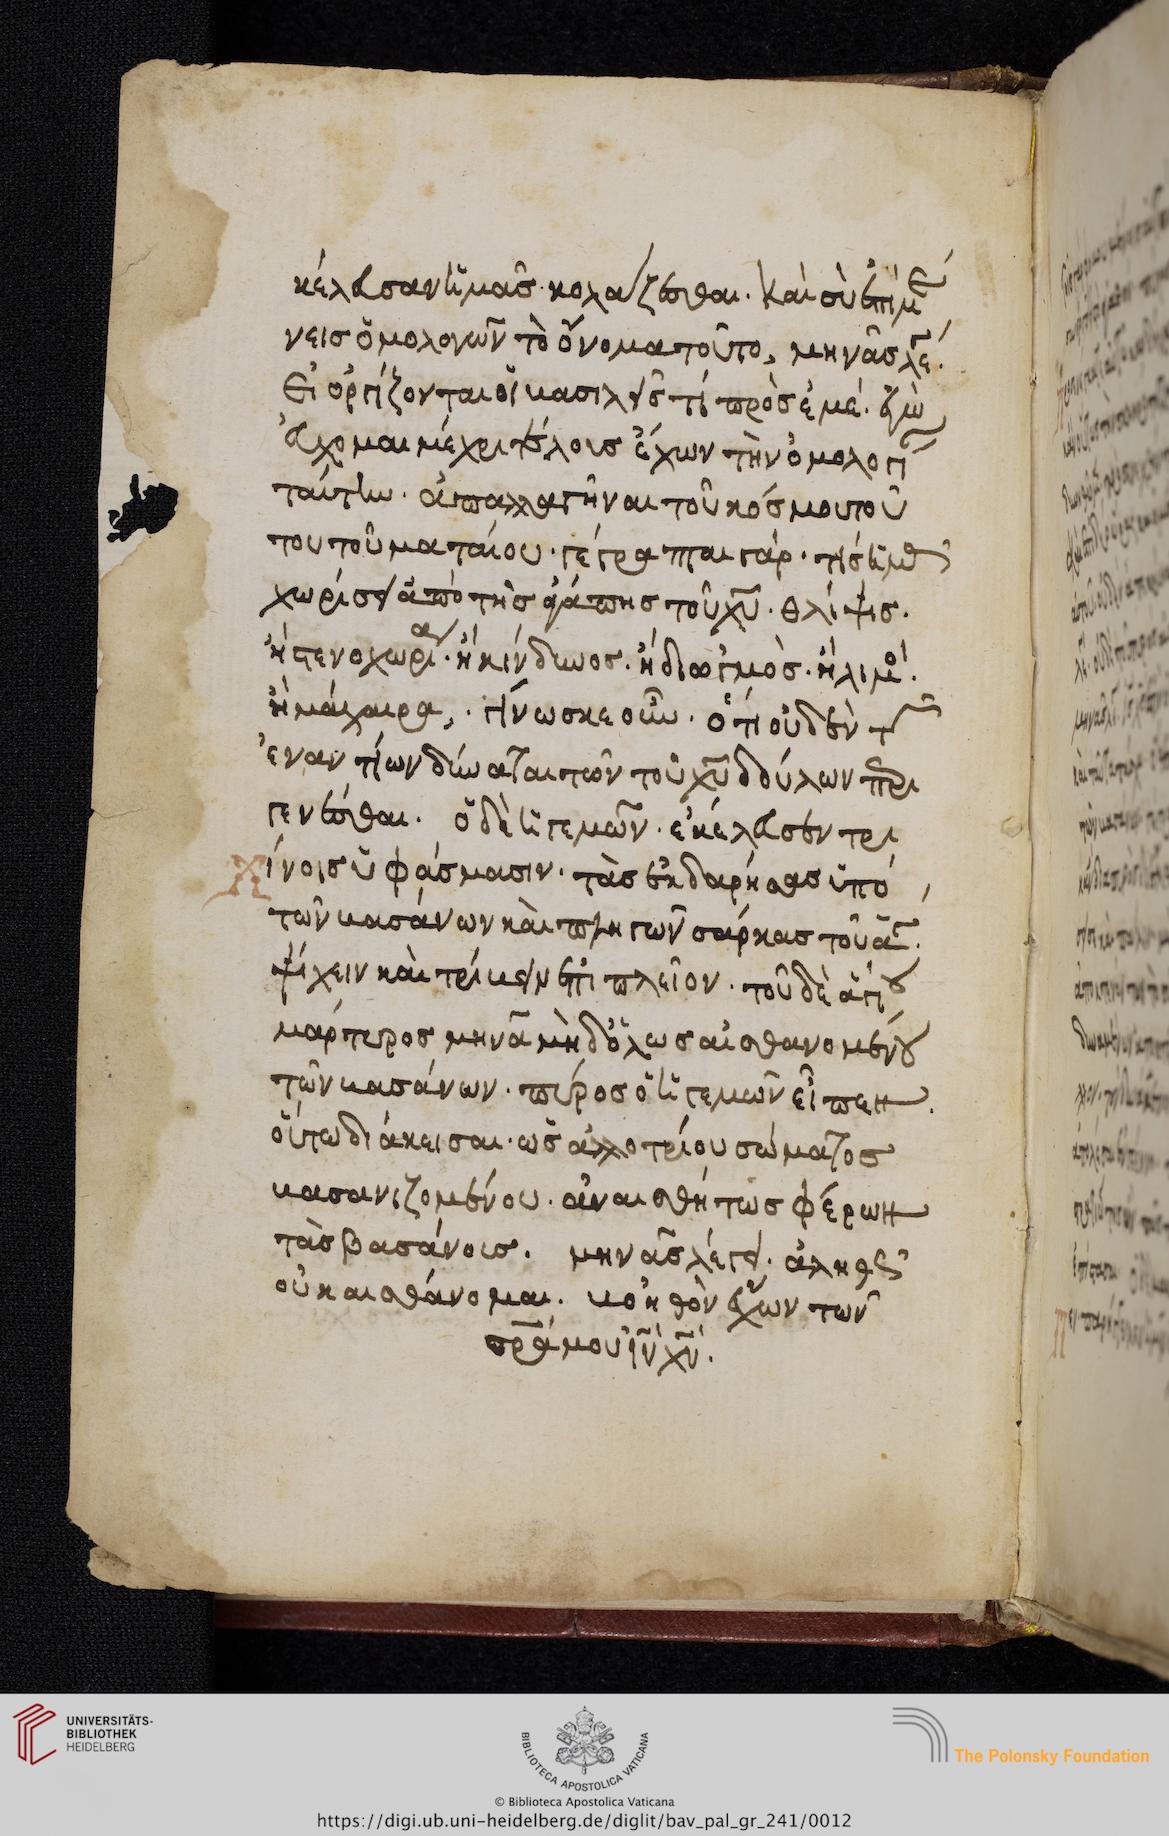 κέλευσαν ὑμᾶς κολάζεσθαι. καὶ σὺ ἐπιμέ
νεις ὁμολογῶν τὸ ὄνομα τοῦτο, μηνᾶς λέγει.
Εἰ ὀργίζονται οἱ βασιλεῖς τί πρὸς ἐμέ. ἐγὼ
εὔχομαι μέχρι τέλους ἔχων τὴν ὁμολογίαν
ταύτην. ἀπαλλαγῆναι τοῦ κόσμου τού
του τοῦ ματαίου. γέγραπται γάρ. τίς ἡμᾶς
χωρίσει ἀπὸ τῆς ἀγάπης τοῦ χυ. θλίψις.
ἢ στενοχωρία. ἢ κίνδυνος. ἢ διωγμὸς. ἢ λιμός.
ἢ μάχαιρα. γίνωσκε οὖν. ὅτι οὐδὲν τῶν
ἐναντίων δύναται τῶν τοῦ χυ δούλων περι
γενέσθαι. ὁ δὲ ἡγεμὼν. ἐκέλευσεν τρι
χίνοις ὑφάσμασιν. τὰς ἐκδαρείσας ὑπὸ
τῶν βασάνων καὶ πληγῶν σάρκας τοῦ ἁγίου.
ψύχειν καὶ τρίβειν ἐπὶ πλεῖον. τοῦ δὲ ἁγίου
μάρτυρος μηνᾶ μὴδόλως αἰσθανομένου
τῶν βασάνων. πύρος ὁ ἡγεμὼν εἶπεν.
οὕτω διάκεισαι. ὡς ἀλλοτρίου σώματος
βασανιζομένου. ἀναισθήτως φέρων
τὰς βασάνους. μηνᾶς λέγει. ἀληθῶς
οὐκ αἰσθάνομαι. βοηθὸν ἔχων τὸν
σρα μου ιν χν.
UNIVERSITÄTS-
BIBLIOTHEK
HEIDELBERG
BIBLIOTECA APOSTOLICA VATICANA
The Polonsky Foundation
© Biblioteca Apostolica Vaticana
https://digi.ub.uni-heidelberg.de/diglit/bav_pal_gr_241/0012